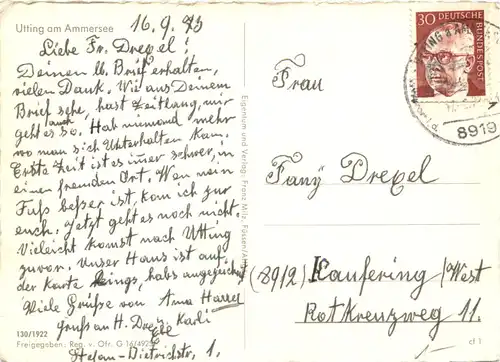 Utting am Ammersee
16.9.73
Liebe Fr. Drexel!
Deinen lb. Brief erhalten,
vielen Dank. Wie aus Deinem
Brief sehe, hast Zeitlang, mir
geht es auch so. Hab niemand mehr
wo man sich Unterhalten kan.
Erste Zeit ist es imer schwer, in
einen fremden Ort. Wen mein
Fuß beßer ist, kom ich zur
euch. jetzt geht es noch nicht.
Vieleicht komst nach Utting
zuvor. Unser Haus ist auf
der Karte links, habs angezeichnet
Viele Grüße von Anna
Gruß an H. Dre u. Karli
Dietrichstr. 1.
130/1922
Freigegeben: Reg. v. Ofr. G 16/4925
Eigentum und Verlag: Franz Milz, Füssen/Allg.
30 DEUTSCHE BUNDESPOST
8919
Frau
Fany Drexel
(8912) Kaufering/West
Rot Kreuzweg 11.
cf 1